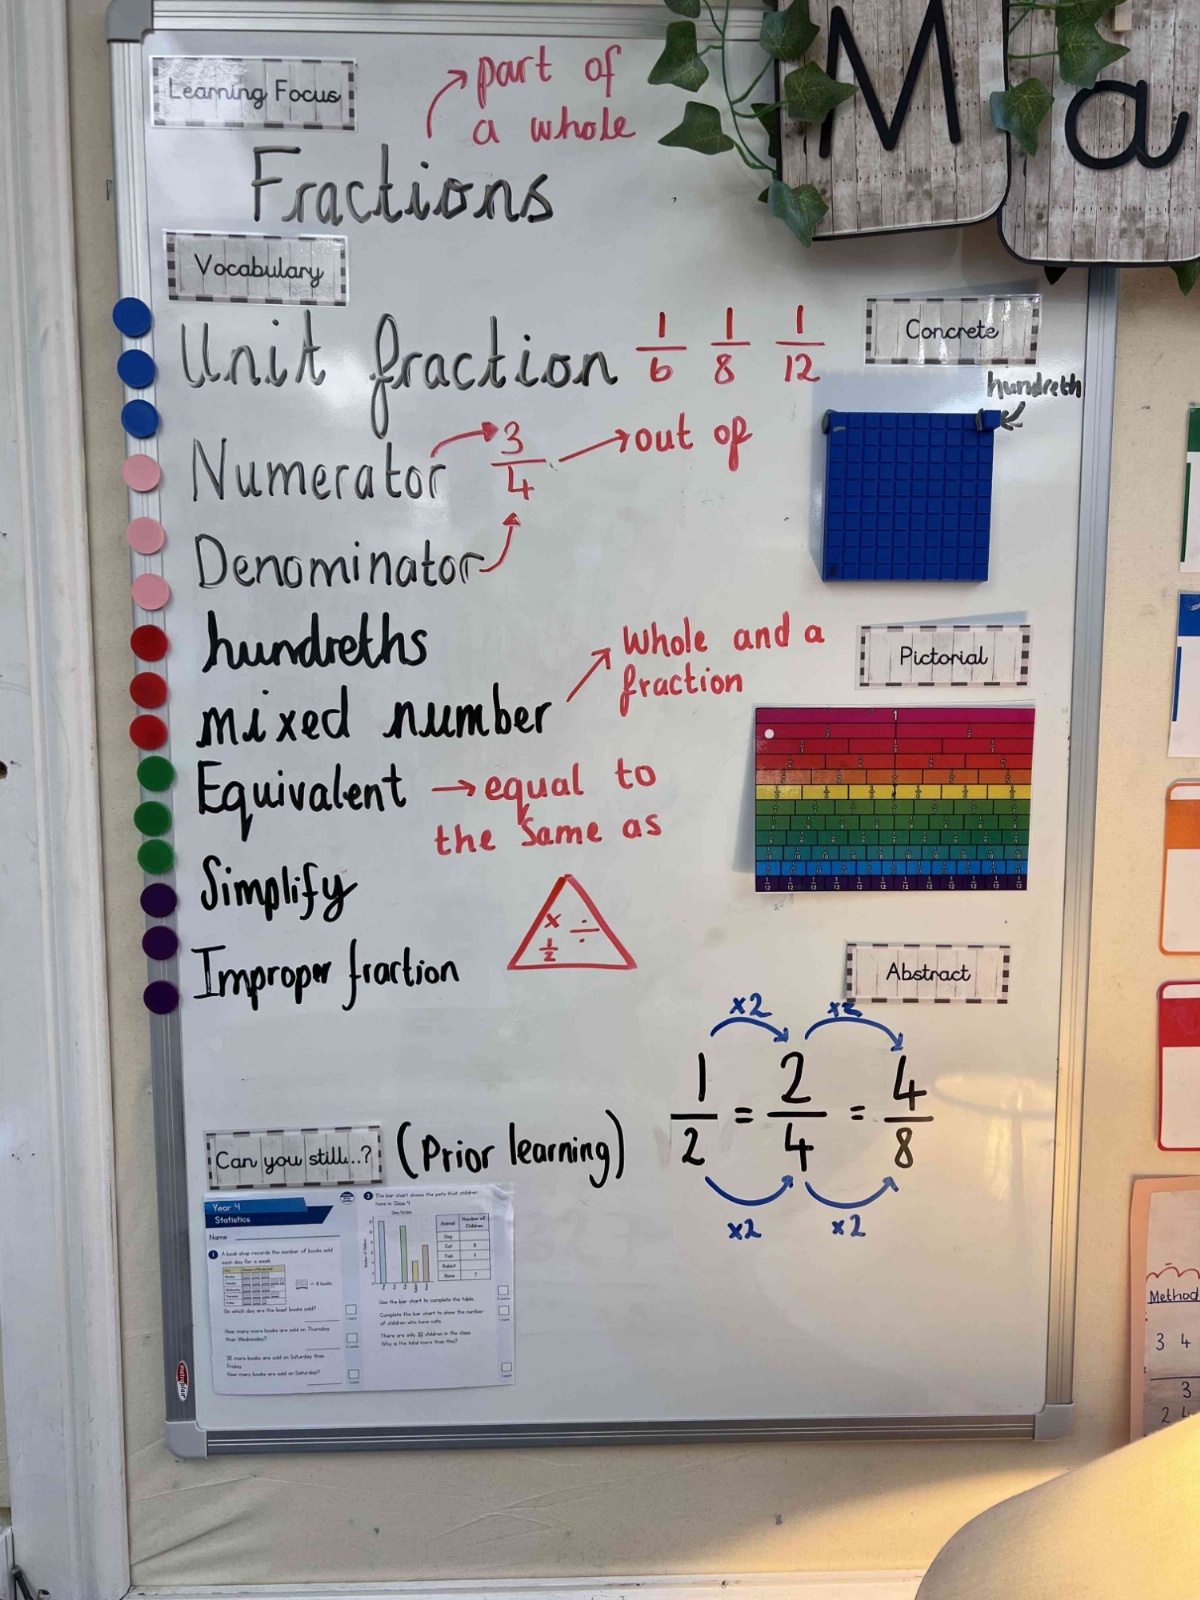 Learning Focus
part of
a whole
Fractions
M a
Vocabulary
Unit fraction 1/6 1/8 1/12
Concrete
hundreth
Numerator 3/4 out of
Denominator
hundreths
mixed number
Whole and a
fraction
Pictorial
1
Equivalent → equal to
the same as
Simplify
x ÷
1/2
Improper fraction
Abstract
x2 x2
1/2 = 2/4 = 4/8
x2 x2
Can you still..? (Prior learning)
Year 4
Statistics
Name
A book shop records the number of books sold
each day for a week.
On which day are the least books sold?
How many more books are sold on Thursday
than Wednesday?
more books are sold on Saturday than
Friday.
How many books are sold on Saturday?
The bar chart shows the pets that children
have in Class 4
Animal
Number of
Children
Dog
Cat
Fish
Rabbit
None 7
Use the bar chart to complete the table.
Complete the bar chart to show the number
of children who have cats.
There are only 32 children in the class.
Why is the total more than this?
metroplan
Method
3 4
3
2 4